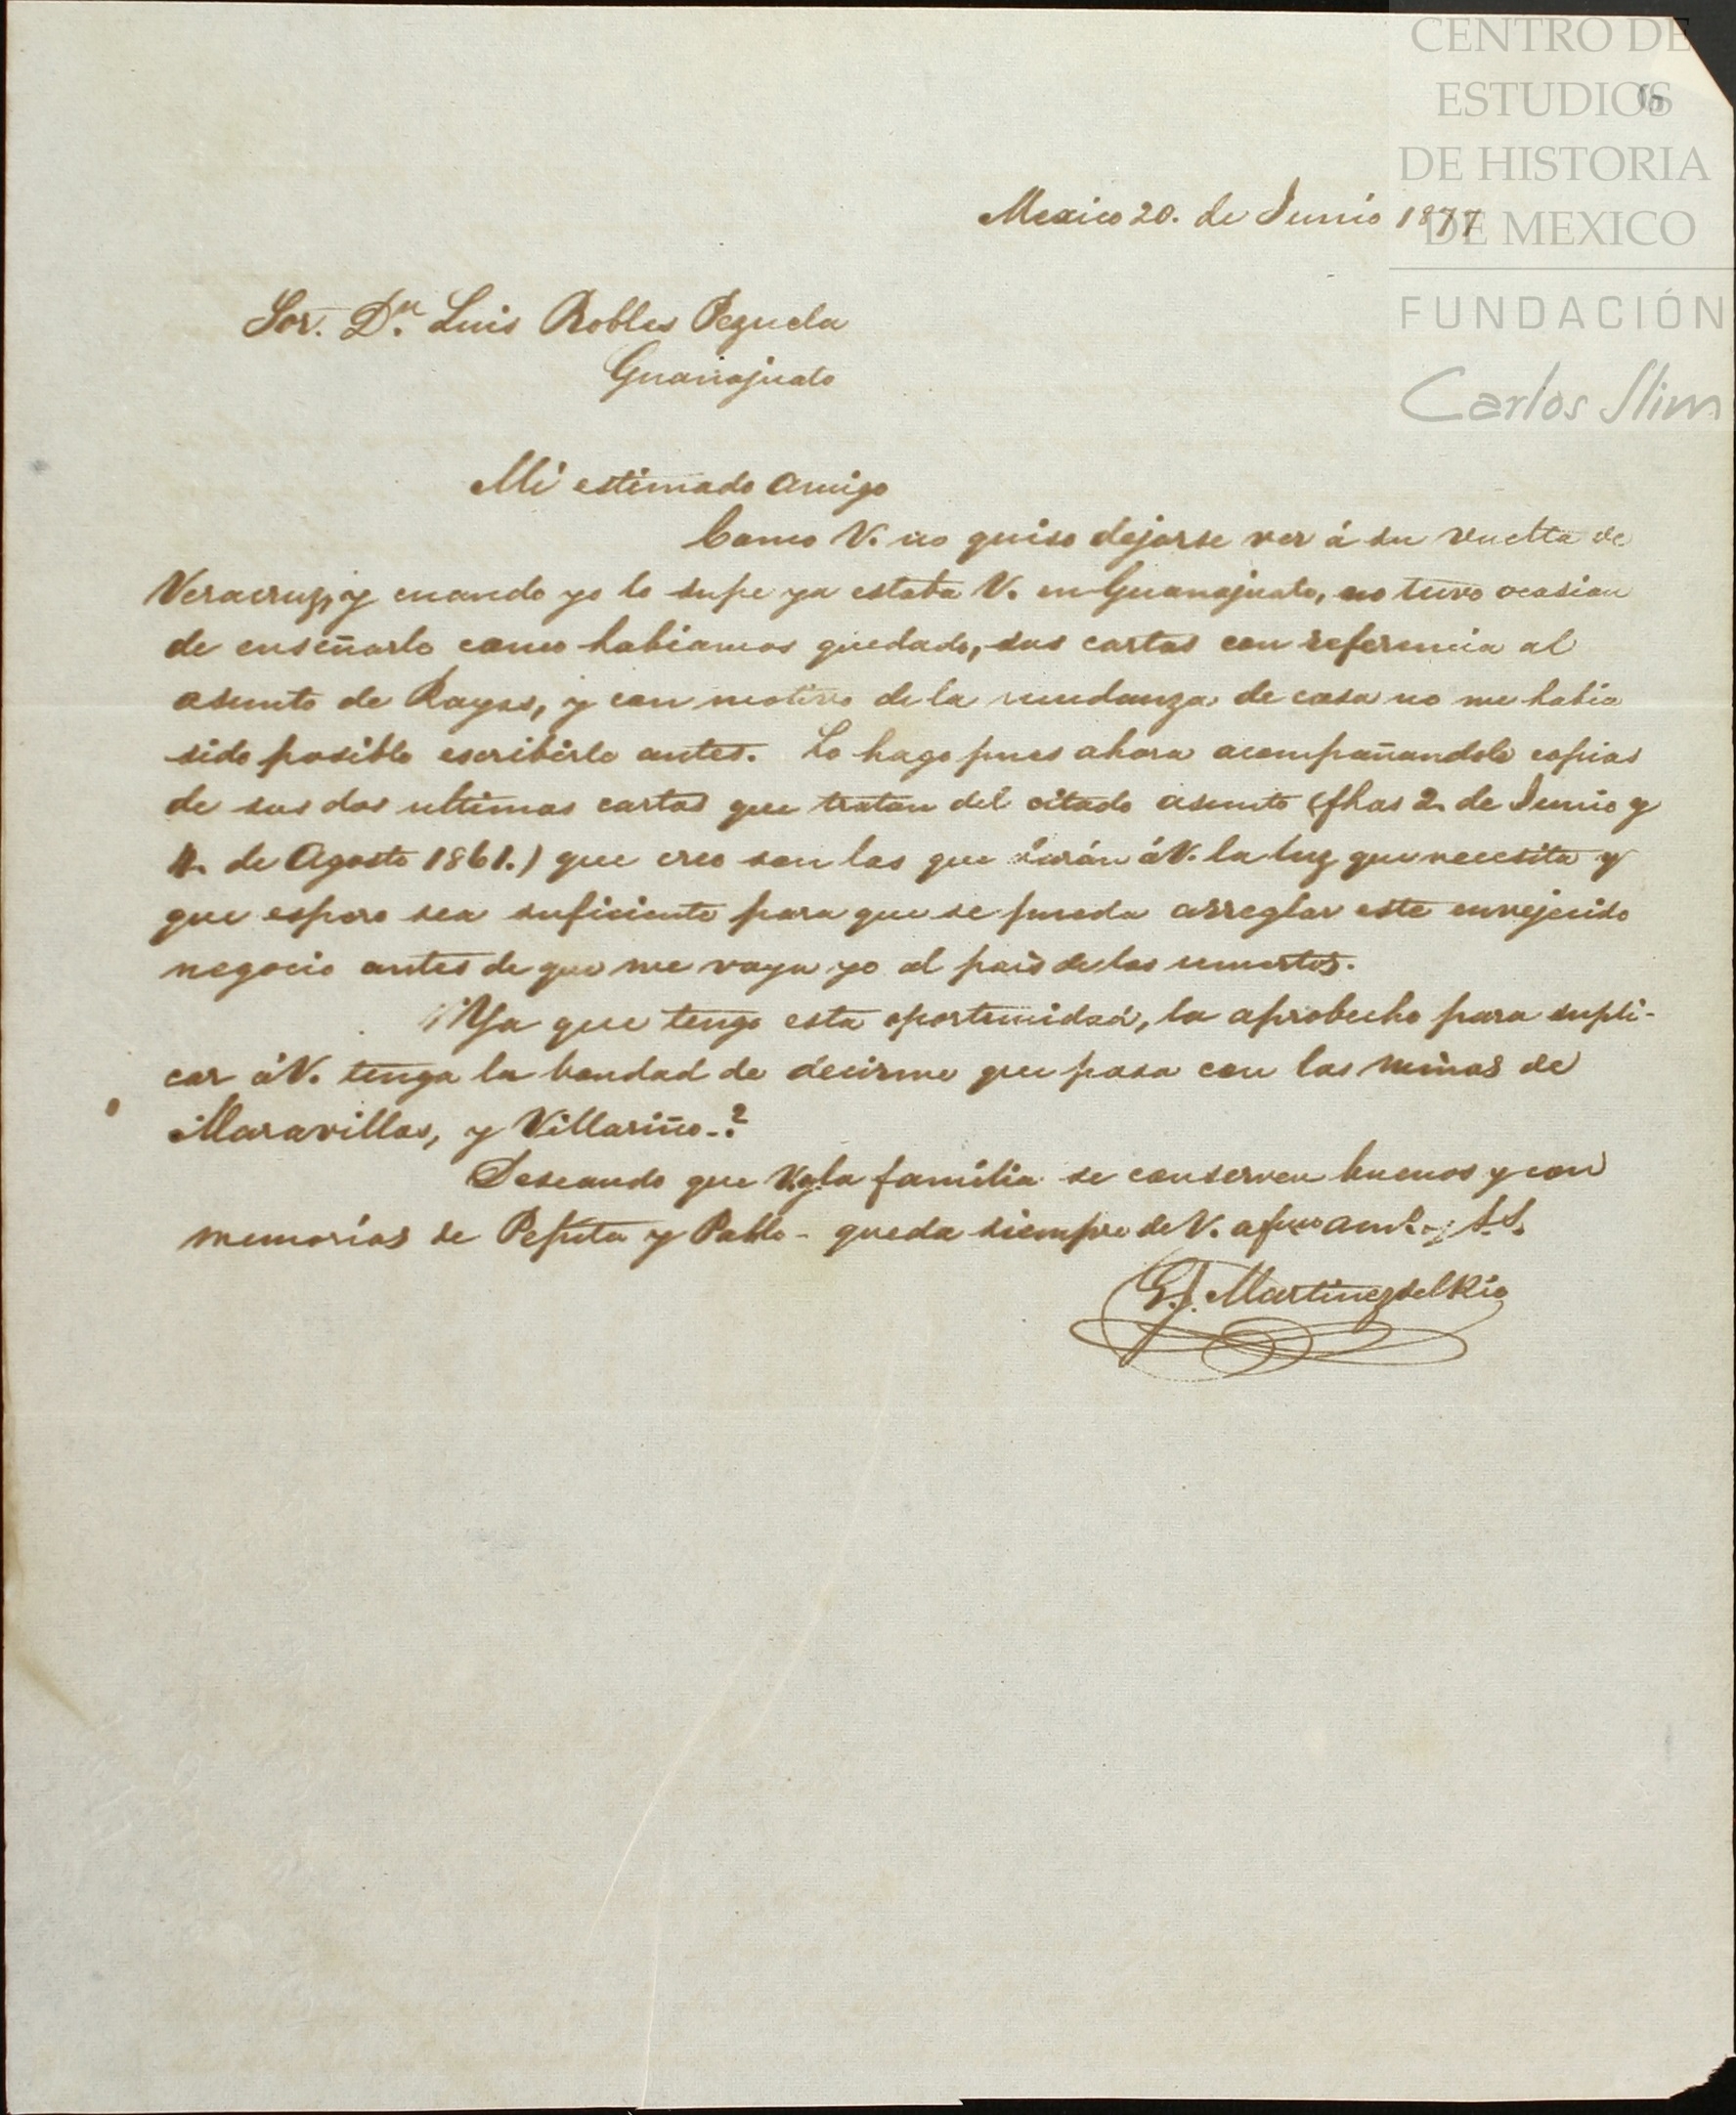 CENTRO DE
ESTUDIOS
DE HISTORIA
DE MEXICO
FUNDACIÓN
Carlos Slim
Mexico 20. de Junio 1877
Sor. Dn. Luis Robles Pezuela
Guanajuato
Mi estimado amigo
Como V. no quiso dejarse ver á su vuelta de
Veracruz, y cuando yo lo supe ya estaba V. en Guanajuato, no tuve ocasion
de enseñarle como habiamos quedado, sus cartas con referencia al
asunto de Rayas, y con motivo de la mudanza de casa no me habia
sido posible escribirle antes. Lo hago pues ahora acompañandole copias
de sus dos ultimas cartas que tratan del citado asunto (fhas 2. de Junio y
4. de Agosto 1861.) que creo son las que darán á V. la luz que necesita y
que espero sea suficiente para que se pueda arreglar este envejecido
negocio antes de que me vaya yo al pais de los muertos.
Ya que tengo esta oportunidad, la aprobecho para supli-
car á V. tenga la bondad de decirme que pasa con las minas de
Maravillas, y Villariño-?
Deseando que V. y la familia se conserven buenos y con
memorias de Pepita y Pablo - queda siempre de V. afmo amo. y S.S.
G. J. Martinez del Rio